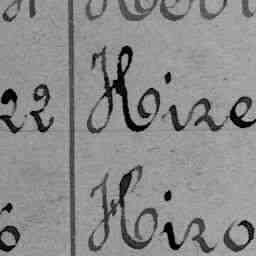 22 Hire
6 Hiro